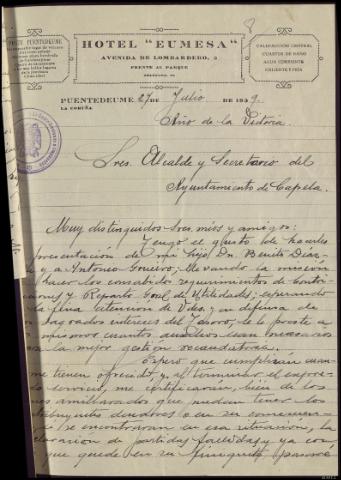 HOTEL "EUMESA"
AVENIDA DE LOMBARDERO, 3
FRENTE AL PARQUE
CALEFACCIÓN CENTRAL
CUARTOS DE BAÑO
AGUA CORRIENTE
CALIENTE Y FRÍA
PUENTEDEUME 27 DE Julio de 1939.
LA CORUÑA
Año de la Victoria
Sres. Alcalde y Secretario del
Ayuntamiento de Capela.
Muy distinguidos Sres. míos y amigos:
Tengo el gusto de hacerles
presentación de mi hijo, Dn. Benito Díaz
y a Antonio; llevando la misión
hacer los consabidos requerimientos de
y Reparto Gral. de Utilidades; esperando
la fina atención de Vdes., en defensa de
sagrados intereses del Tesoro, le preste a
mismos cuantos auxilios sean necesarios
a la mejor gestión recaudatoria.
Espero que cumplirán
me tienen ofrecido y, al terminar el
servicio, me certificarán, bien de los
amillarados que puedan tener los
deudores o en su
se encontraran en esa situación, la
de partidas fallidas y ya con
que quede en su finiquito pasaré